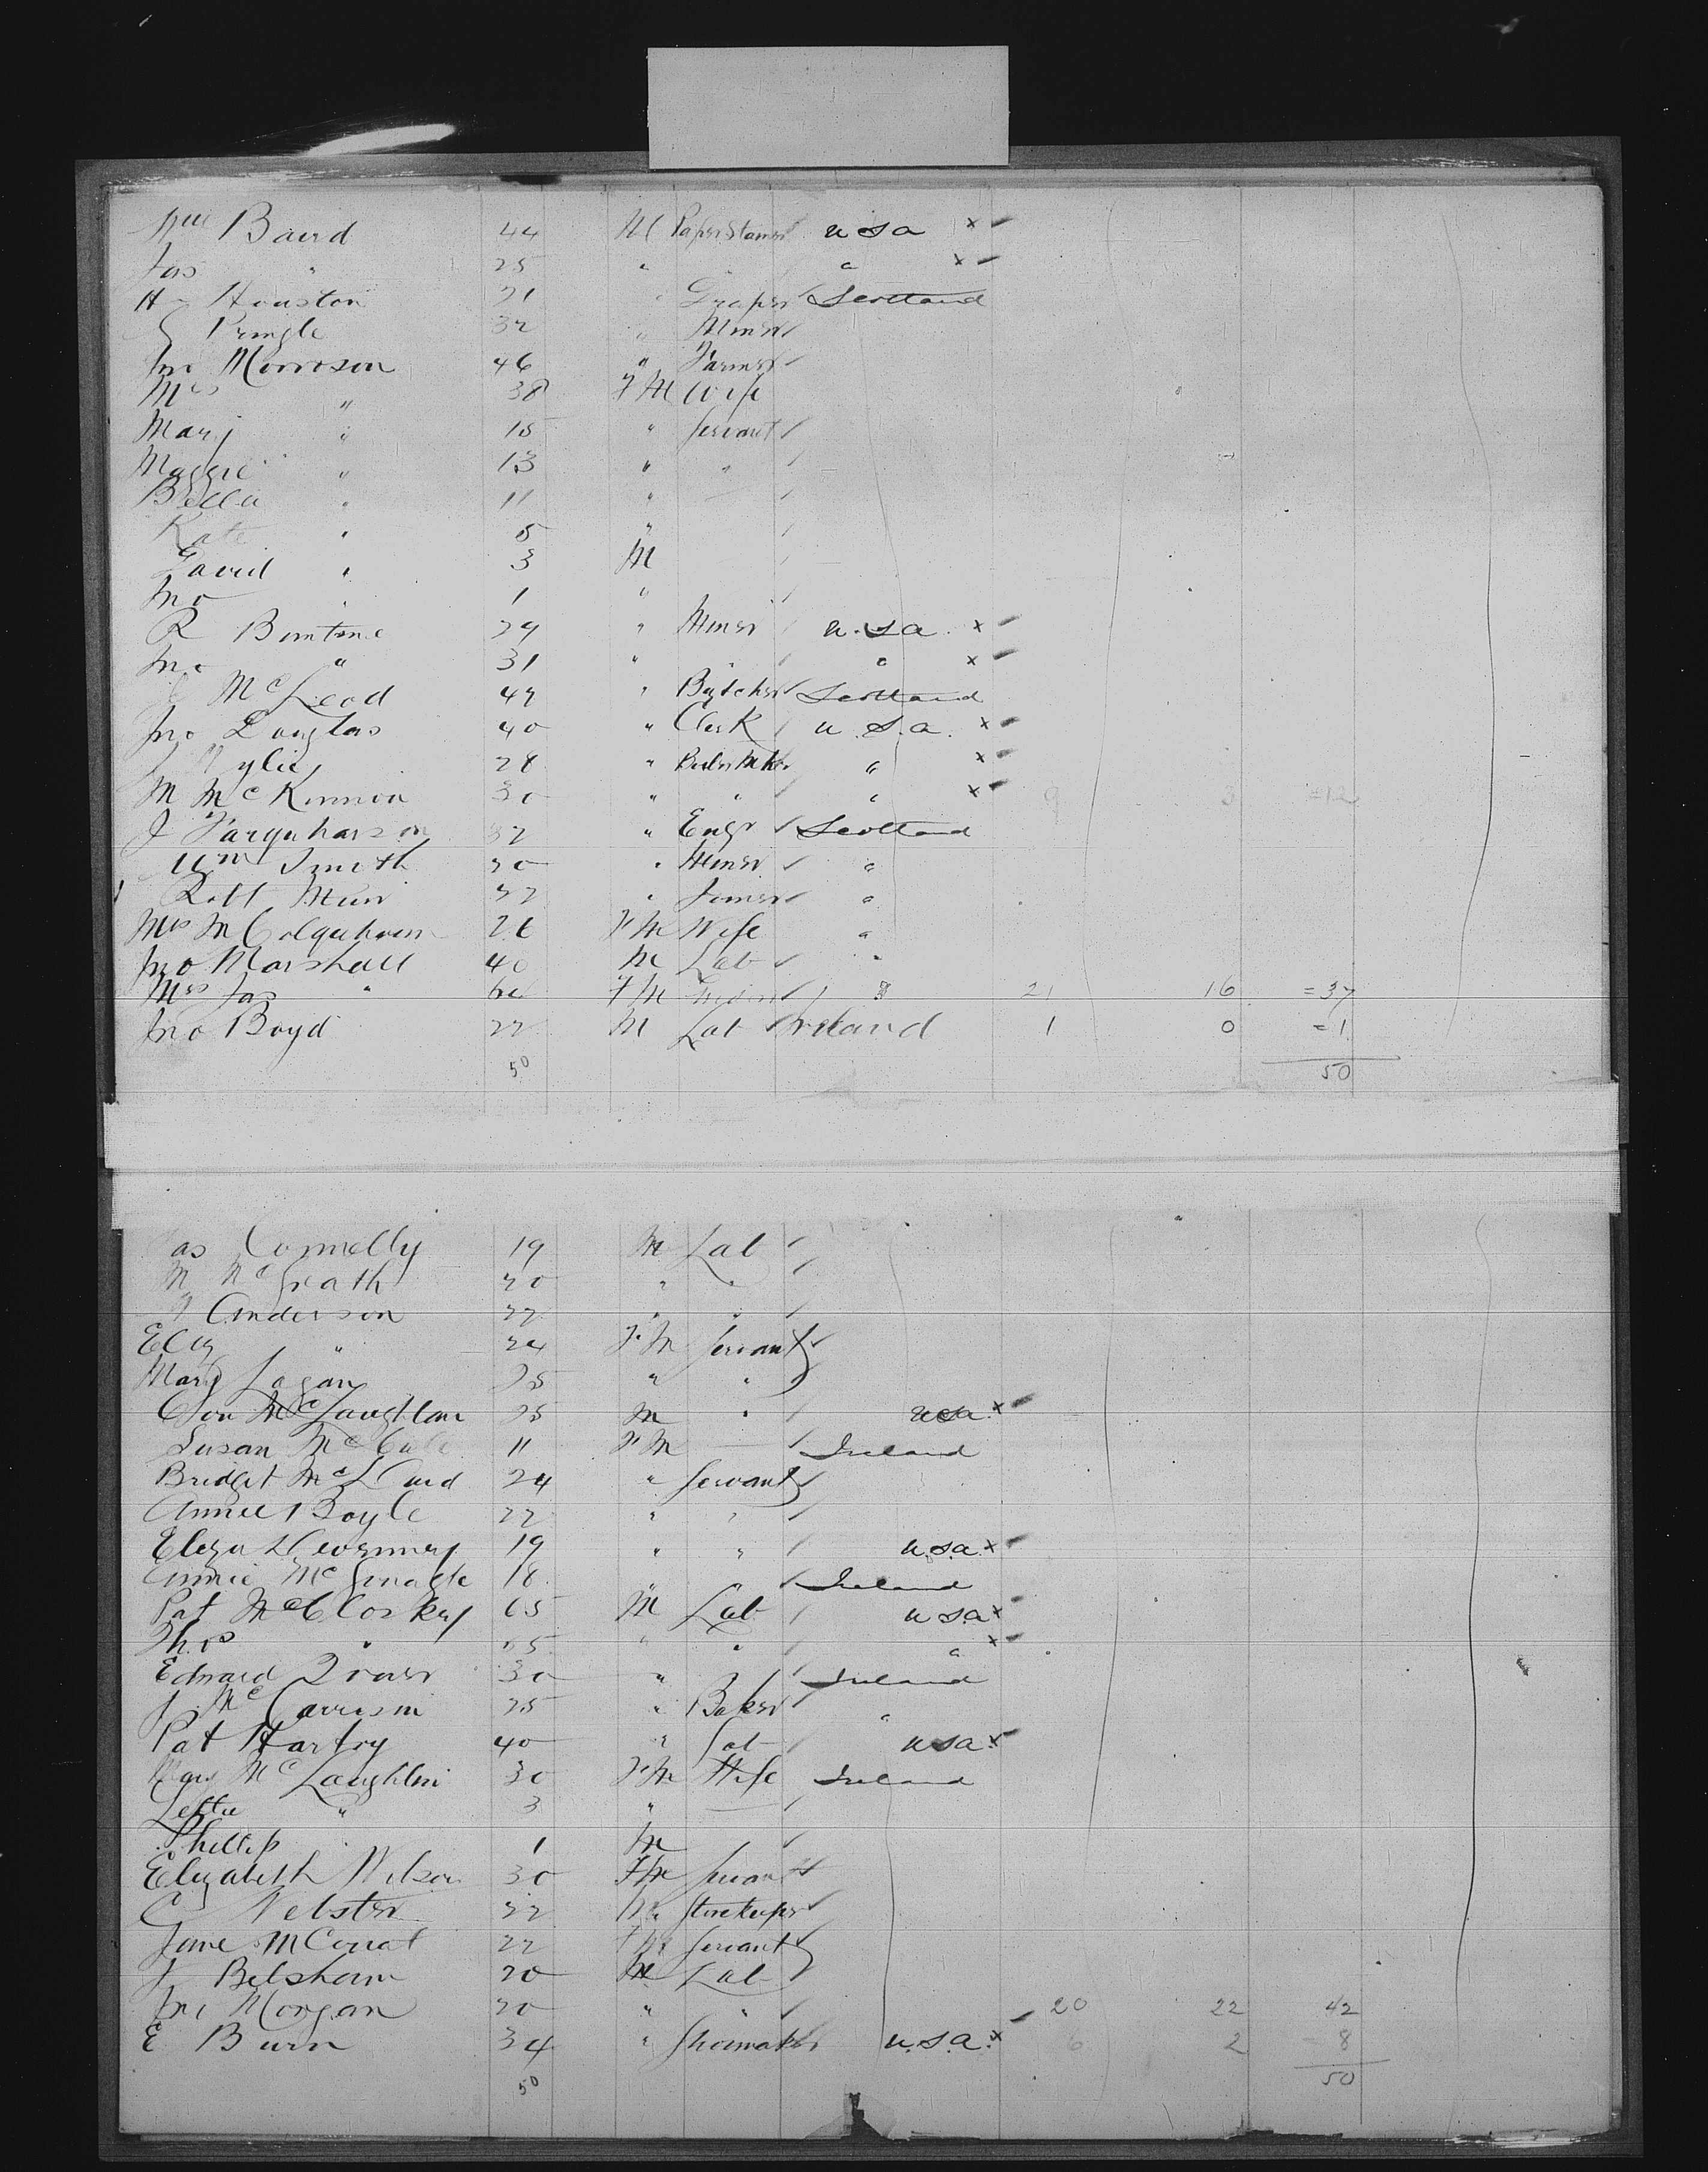 Wm Baird 44 M Paperstainer usa x
Jas " 25 " " " x
H Houston 21 " Draper Scotland
Pringle 32 " Miner
Jno Morrison 46 " Farmer
Mrs " 38 FM Wife
Mary " 15 " Servant
Maggie " 13 " "
Bella " 11 " —
Kate " 5 "
David " 3 M
Jno " 1 "
R Bimtine 29 " Miner u.s.a. x
Jno " 31 " " " x
McLeod 42 " Butcher Scotland
Jno Douglas 40 " Clerk u.s.a. x
Wylie 28 " " x
M McKinnon 30 " " " x 9 3 =12
J Farquharson 32 " Engr Scotland
Wm Smith 20 " Miner "
Robt Muir 22 " Joiner "
Mrs M Colquhoun 26 FM Wife "
Jno Marshall 40 M Lab "
Mrs Jas " FM " 21 16 =37
Jno Boyd 22 M Lab Ireland 1 0 =1
50 50
as Connelly 19 M Lab
M McGrath 20 " "
Anderson 22 " "
Eliz " 24 FM Servant
Mary Logan 25 " "
Con McLaughlan 25 M " usa x
Susan McCale 11 FM — Ireland
Bridget McDaid 24 " Servant
Annie Boyle 22 " "
Eliza 19 " " u.s.a. x
Annie McGonagle 18 Ireland
Pat McCloskey 65 M Lab usa x
Thos " " " " x
Edward 30 " Ireland
J 25 " Baker "
Pat Hartry 40 " Lab usa x
Mary McLaughlin 30 FM Wife Ireland
Lettie " 3 " —
Phillip " 1 M
Elizabeth Wilson 30 FM Servant
C Webster 22 M Storekeeper
Jane 22 FM Servant
J Belsham 20 M Lab
Jno Morgan 20 " " 20 22 42
E Burn 34 " Shoemaker u.s.a. x 6 2 8
50 50